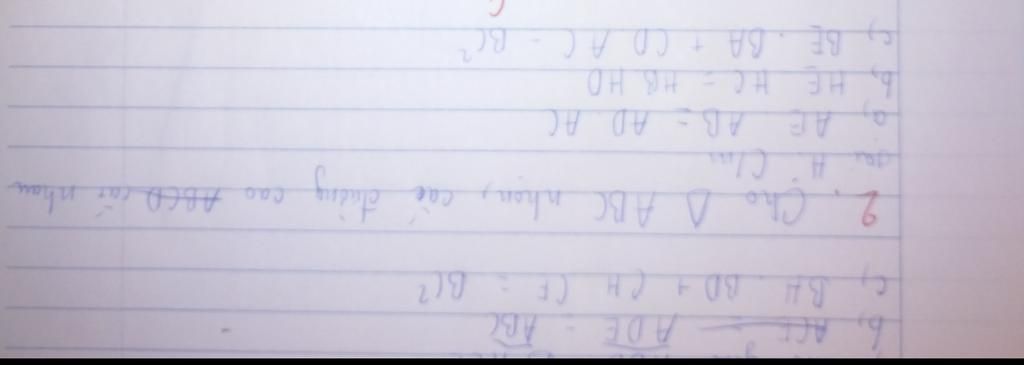 b, ADE = ABC
c, BH . BD + CH CE = BC²
2. Cho Δ ABC nhọn, các đường cao ABCD cắt nhau
H. C/m
a, AE AB = AD . AC
b, HE HC = HB HD
c, BE . BA + CD AC = BC²